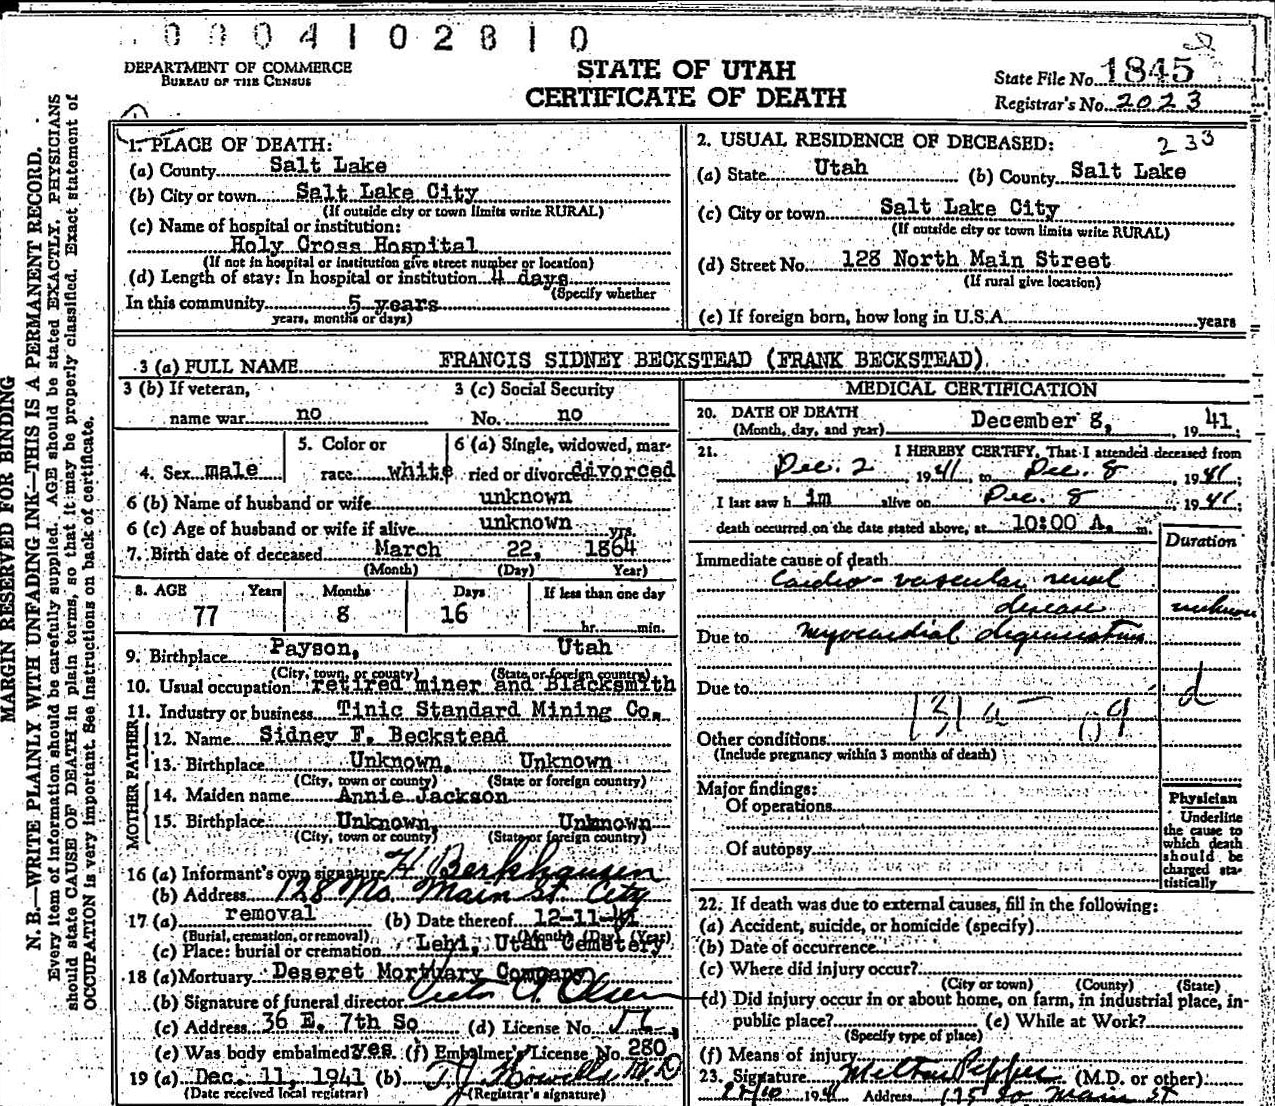 0004102810
DEPARTMENT OF COMMERCE
BUREAU OF THE CENSUS
STATE OF UTAH
CERTIFICATE OF DEATH
State File No. 1845
Registrar's No. 2023
MARGIN RESERVED FOR BINDING
N. B.—WRITE PLAINLY WITH UNFADING INK—THIS IS A PERMANENT RECORD.
Every item of information should be carefully supplied. AGE should be stated EXACTLY. PHYSICIANS
should state CAUSE OF DEATH in plain terms, so that it may be properly classified. Exact statement of
OCCUPATION is very important. See instructions on back of certificate.
1. PLACE OF DEATH:
(a) County Salt Lake
(b) City or town Salt Lake City
(If outside city or town limits write RURAL)
(c) Name of hospital or institution:
Holy Cross Hospital
(If not in hospital or institution give street number or location)
(d) Length of stay: In hospital or institution 4 days
(Specify whether
In this community 5 years
years, months or days)
2. USUAL RESIDENCE OF DECEASED: 233
(a) State Utah (b) County Salt Lake
(c) City or town Salt Lake City
(If outside city or town limits write RURAL)
(d) Street No. 128 North Main Street
(If rural give location)
(e) If foreign born, how long in U.S.A. years
3 (a) FULL NAME FRANCIS SIDNEY BECKSTEAD (FRANK BECKSTEAD)
3 (b) If veteran, 3 (c) Social Security
name war no No. no
4. Sex male 5. Color or race white 6 (a) Single, widowed, married or divorced divorced
6 (b) Name of husband or wife unknown
6 (c) Age of husband or wife if alive unknown yrs.
7. Birth date of deceased March 22, 1864
(Month) (Day) Year)
8. AGE Years Months Days If less than one day
77 8 16 hr. min.
9. Birthplace Payson, Utah
(City, town, or county) (State or foreign country)
10. Usual occupation retired miner and Blacksmith
11. Industry or business Tinic Standard Mining Co.
FATHER
12. Name Sidney F. Beckstead
13. Birthplace Unknown, Unknown
(City, town or county) (State or foreign country)
MOTHER
14. Maiden name Annie Jackson
15. Birthplace Unknown, Unknown
(City, town or county) (State or foreign country)
16 (a) Informant's own signature H Berkhausen
(b) Address 128 No. Main St. City
17 (a) removal (b) Date thereof 12-11-41
(Burial, cremation, or removal) (Month) (Day) (Year)
(c) Place: burial or cremation Lehi, Utah Cemetery
18 (a) Mortuary Deseret Mortuary Company
(b) Signature of funeral director Olsen
(c) Address 36 E. 7th So (d) License No.
(e) Was body embalmed? yes (f) Embalmer's License No. 280
19 (a) Dec. 11, 1941 (b) T J Howells M D
(Date received local registrar) (Registrar's signature)
MEDICAL CERTIFICATION
20. DATE OF DEATH
(Month, day, and year) December 8, 1941;
21. I HEREBY CERTIFY, That I attended deceased from
Dec. 2, 1941, to Dec. 8, 1941;
I last saw h im alive on Dec. 8, 1941;
death occurred on the date stated above, at 10:00 A. m.
Duration
Immediate cause of death
Cardio-vascular renal
disease unknown
Due to myocardial degeneration
Due to d
131 a 09
Other conditions
(Include pregnancy within 3 months of death)
Major findings:
Of operations
Of autopsy
Physician
Underline
the cause to
which death
should be
charged sta-
tistically
22. If death was due to external causes, fill in the following:
(a) Accident, suicide, or homicide (specify)
(b) Date of occurrence
(c) Where did injury occur?
(City or town) (County) (State)
(d) Did injury occur in or about home, on farm, in industrial place, in-
public place? (e) While at Work?
(Specify type of place)
(f) Means of injury
23. Signature Milton Pepper (M.D. or other)
1941 Address 175 So Main St